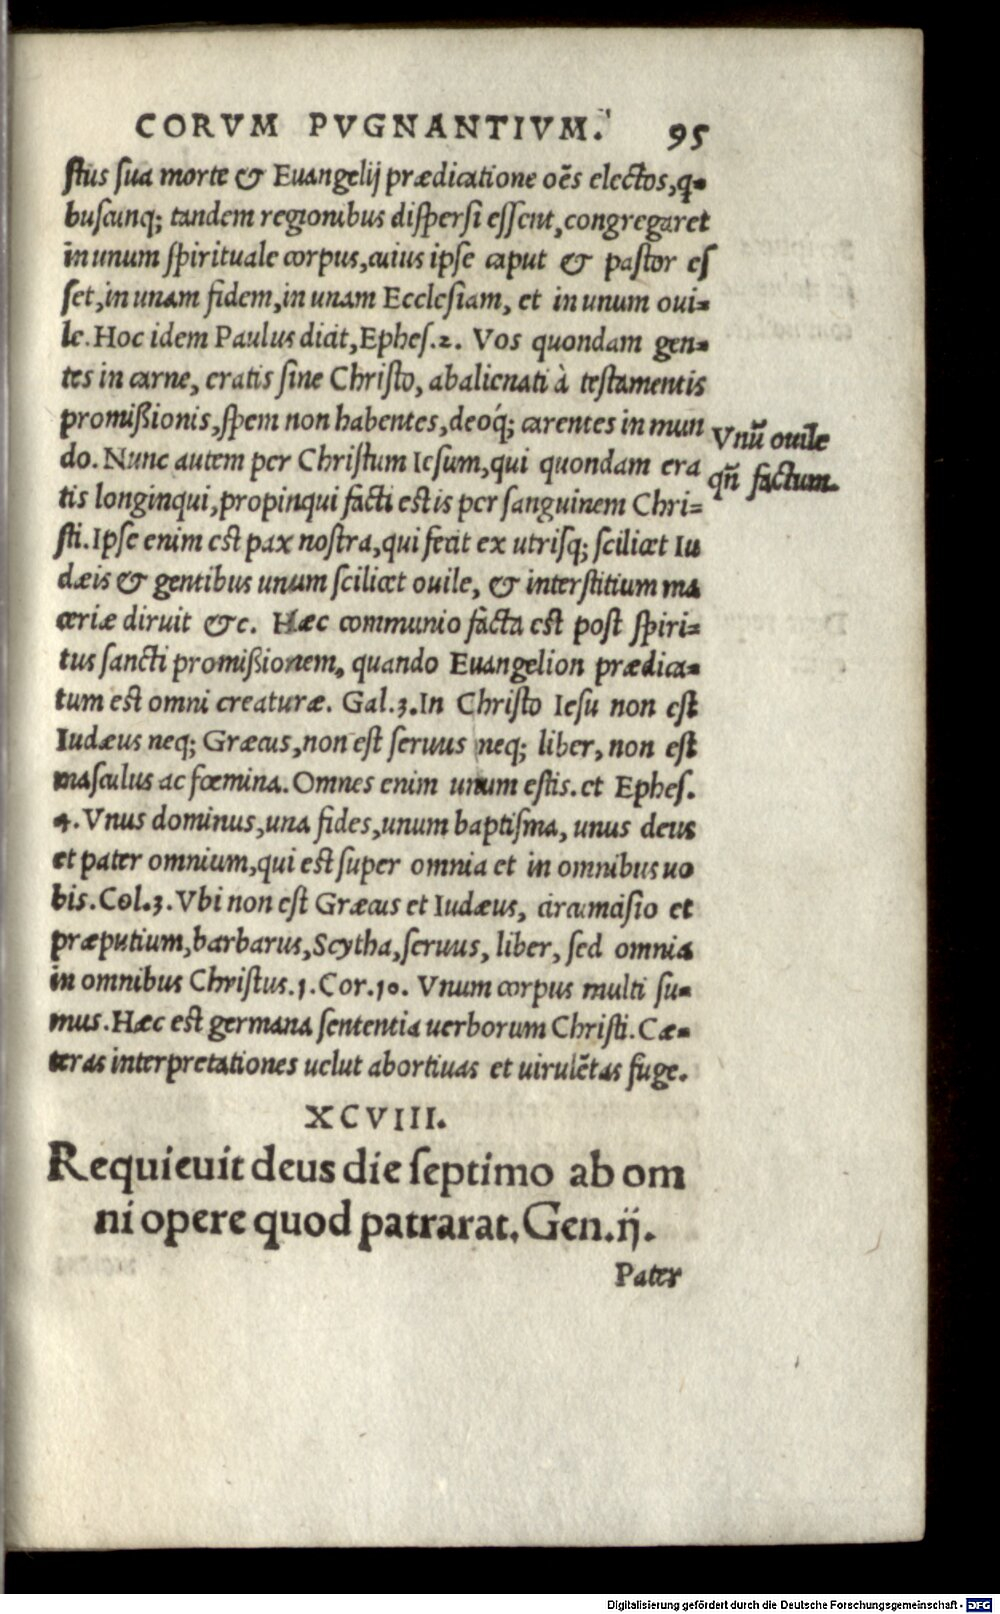 CORVM PVGNANTIVM. 95
ſtus ſua morte & Euangelij prædicatione oẽs electos, q-
buſcunq; tandem regionibus diſperſi eſſent, congregaret
in unum ſpirituale corpus, cuius ipſe caput & paſtor eſ
ſet, in unam fidem, in unam Eccleſiam, et in unum oui-
le. Hoc idem Paulus dicit, Epheſ.2. Vos quondam gen-
tes in carne, eratis ſine Chriſto, abalienati à teſtamentis
promißionis, ſpem non habentes, deoq́; carentes in mun
do. Nunc autem per Chriſtum Ieſum, qui quondam era
tis longinqui, propinqui facti eſtis per ſanguinem Chri-
ſti. Ipſe enim eſt pax noſtra, qui fecit ex utriſq; ſcilicet Iu
dæis & gentibus unum ſcilicet ouile, & interſtitium ma
ceriæ diruit &c. Hæc communio facta eſt poſt ſpiri-
tus ſancti promißionem, quando Euangelion prædica-
tum eſt omni creaturæ. Gal.3. In Chriſto Ieſu non eſt
Iudæus neq; Græcus, non eſt ſeruus neq; liber, non eſt
maſculus ac fœmina. Omnes enim unum eſtis. et Epheſ.
4. Vnus dominus, una fides, unum baptiſma, unus deus
et pater omnium, qui eſt ſuper omnia et in omnibus uo
bis. Col.3. Vbi non eſt Græcus et Iudæus, circumciſio et
præputium, barbarus, Scytha, ſeruus, liber, ſed omnia
in omnibus Chriſtus. 1. Cor.10. Vnum corpus multi ſu-
mus. Hæc eſt germana ſententia uerborum Chriſti. Cæ-
teras interpretationes uelut abortiuas et uirulẽtas fuge.
Vnũ ouile
qñ factum.
XCVIII.
Requieuit deus die ſeptimo ab om
ni opere quod patrarat. Gen.ij.
Pater
Digitalisierung gefördert durch die Deutsche Forschungsgemeinschaft - DFG